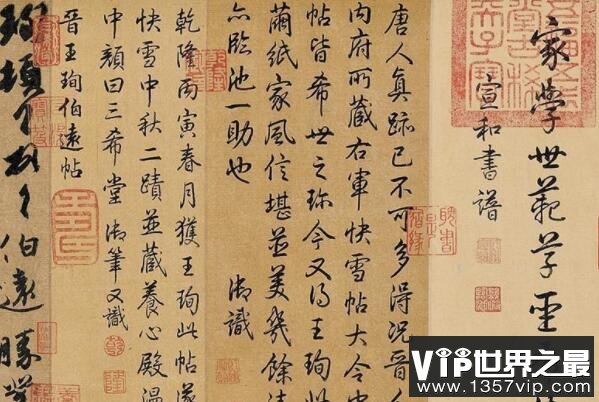 家學世範草聖
宣和書譜
唐人真跡已不可多得況晉人
內府所藏右軍快雪帖大令
帖皆希世之珍今又得王珣此
繭紙家風信堪並美幾餘清
亦臨池一助也 御識
乾隆丙寅春月獲王珣此帖遂
快雪中秋二蹟並藏養心殿溫
中顏曰三希堂御筆又識
晉王珣伯遠帖
珣頓首頓首伯遠勝業
VIP世界之最
www.1357vip.com